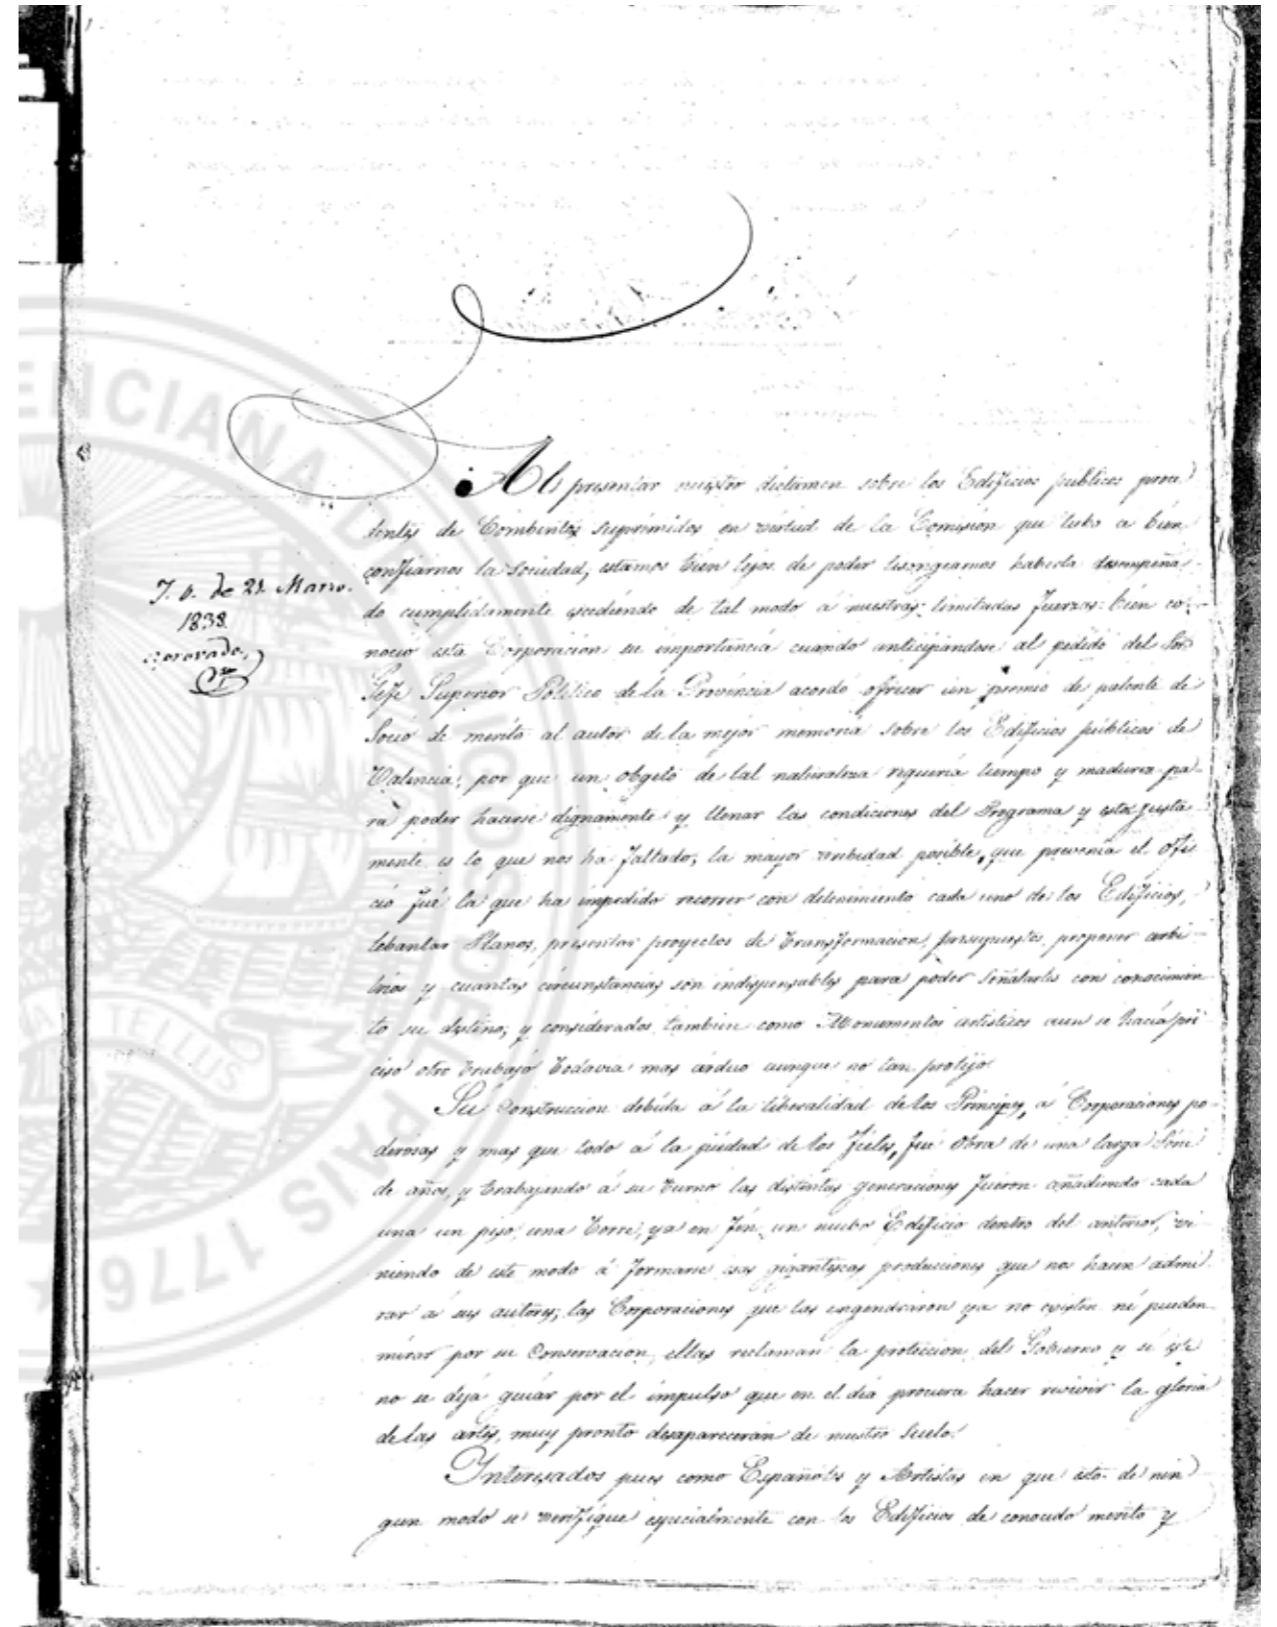 J. o. de 21 Marzo.
1838.
Aprovado.
Al presentar nuestro dictamen sobre los Edificios publicos proce
dentes de Combentos suprimidos en virtud de la Comision que tubo a bien
confiarnos la Sociedad, estamos bien lejos de poder lisongearnos haberla desempeña
do cumplidamente ecsediendo de tal modo á nuestras limitadas fuerzas: bien co-
noció esta Corporacion su importancia cuando anticipandose al pedido del Sor.
Gefe Superior Politico de la Provincia acordó ofrecer un premio de patente de
Socio de merito al autor de la mejor memoria sobre los Edificios públicos de
Valencia; por que un obgeto de tal naturaleza requeria tiempo y madurez pa-
ra poder hacerse dignamente y llenar las condiciones del Programa y esto justa
mente es lo que nos ha faltado; la mayor brebedad posible, que prevenia el ofi
cio fué la que ha impedido recorrer con detenimiento cada uno de los Edificios,
lebantar Planos, presentar proyectos de transformacion, presupuestos, proponer arbi-
trios y cuantas circunstancias son indispensables para poder señalarles con conocimien
to su destino; y considerados tambien como Monumentos artisticos aun se hacia pre
ciso otro trabajo todavia mas arduo aunque no tan prolijo.
Su Construccion debida á la liberalidad de los Principes, á Corporaciones po-
derosas y mas que todo á la piedad de los fieles, fué obra de una larga série
de años, y trabajando á su turno las distintas generaciones fueron añadiendo cada
una un piso, una torre, ya en fin un nuebo Edificio dentro del anterior, vi
niendo de este modo á formarse esas gigantescas producciones que nos hacen admi
rar á sus autores; las Corporaciones que las engendraron ya no ecsisten ni pueden
mirar por su Conservacion, ellas reclaman la proteccion del Gobierno y si este
no se deja guiar por el impulso que en el dia procura hacer revivir la gloria
de las artes, muy pronto desapareceran de nuestro Suelo.
Interesados pues como Españoles y Artistas en que esto de nin
gun modo se verifique especialmente con los Edificios de conocido merito y
1776